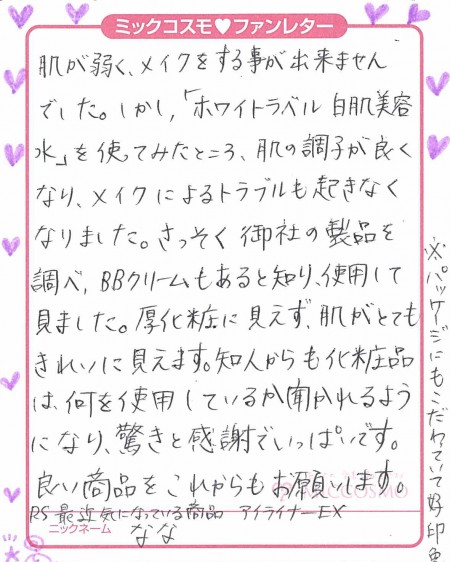 ミックコスモ♥ファンレター
肌が弱く、メイクをする事が出来ません
でした。しかし、「ホワイトラベル 白肌美容
水」を使ってみたところ、肌の調子が良く
なり、メイクによるトラブルも起きなく
なりました。さっそく御社の製品を
調べ、BBクリームもあると知り、使用して
見ました。厚化粧に見えず、肌がとても
きれいに見えます。知人からも化粧品
は、何を使用しているか聞かれるよう
になり、驚きと感謝でいっぱいです。
良い商品をこれからもお願いします。
PS 最近気になっている商品 アイライナーEX
ニックネーム なな
※パッケージにもこだわっていて好印象